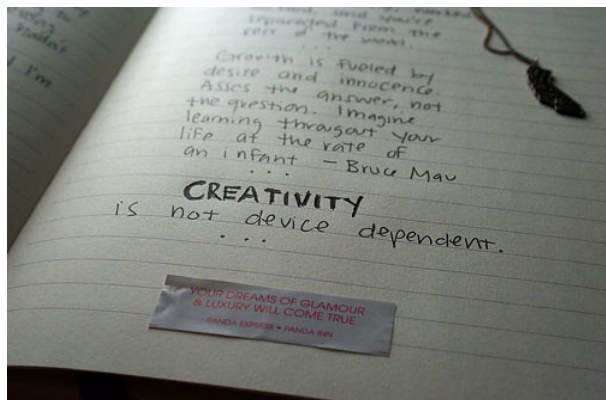 Nadia's
I'm
and you're
separated from the
rest of the world.
...
Growth is fueled by
desire and innocence.
Asses the answer, not
the question. Imagine
learning througout your
life at the rate of
an infant - Bruce Mau
...
CREATIVITY
is not device dependent.
...
YOUR DREAMS OF GLAMOUR
& LUXURY WILL COME TRUE
PANDA EXPRESS • PANDA INN